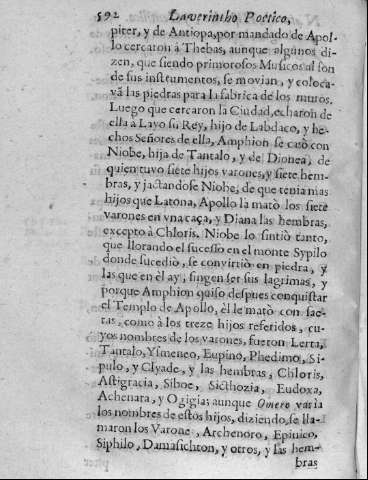 592 Laverintho Poetico,
piter, y de Antiopa, por mandado de Apol-
lo cercaron à Thebas, aunque algunos di-
zen, que siendo primorosos Musicos al son
de sus instrumentos, se movian, y coloca-
vã las piedras para la fabrica de los muros.
Luego que cercaron la Ciudad, echaron de
ella à Layo su Rey, hijo de Labdaco, y he-
chos Señores de ella, Amphion se casò con
Niobe, hija de Tantalo, y de Dionea, de
quien tuvo siete hijos varones, y siete hem-
bras, y jactandose Niobe, de que tenia mas
hijos que Latona, Apollo la matò los siete
varones en vna caça, y Diana las hembras,
excepto à Chloris. Niobe lo sintiò tanto,
que llorando el sucesso en el monte Sypilo
donde sucediò, se convirtiò en piedra, y
las que en èl ay, fingen ser sus lagrimas, y
porque Amphion quiso despues conquistar
el Templo de Apollo, èl le matò con sae-
tas, como à los treze hijos referidos, cu-
yos nombres de los varones, fueron Lerta,
Tantalo, Ysmeneo, Eupino, Phedimo, Si-
pulo, y Clyade, y las hembras, Chloris,
Astigracia, Siboe, Sicthozia, Eudoxa,
Achenara, y Ogigia; aunque Omero varia
los nombres de estos hijos, diziendo, se lla-
maron los Varone, Archenoro, Epinico,
Siphilo, Damasichton, y otros, y las hem-
bras